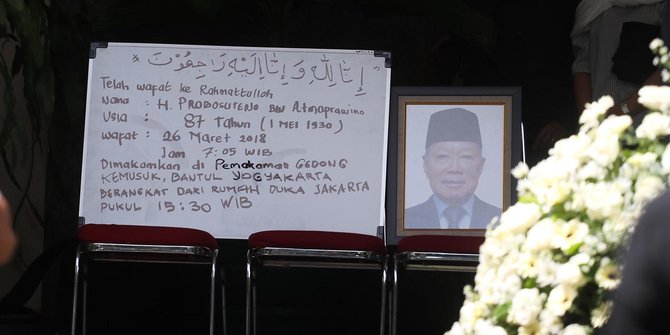 إِنَّا لِلّٰهِ وَإِنَّا إِلَيْهِ رَاجِعُوْنَ
Telah wafat ke Rahmatullah
Nama : H. PROBOSUTEJO Bin Atmoprawiro
Usia : 87 Tahun (1 MEI 1930)
Wafat : 26 Maret 2018
Jam 7:05 WIB
Dimakamkan di Pemakaman GEDONG
KEMUSUK, BANTUL YOGYAKARTA
BERANGKAT DARI RUMAH DUKA JAKARTA
PUKUL 15:30 WIB